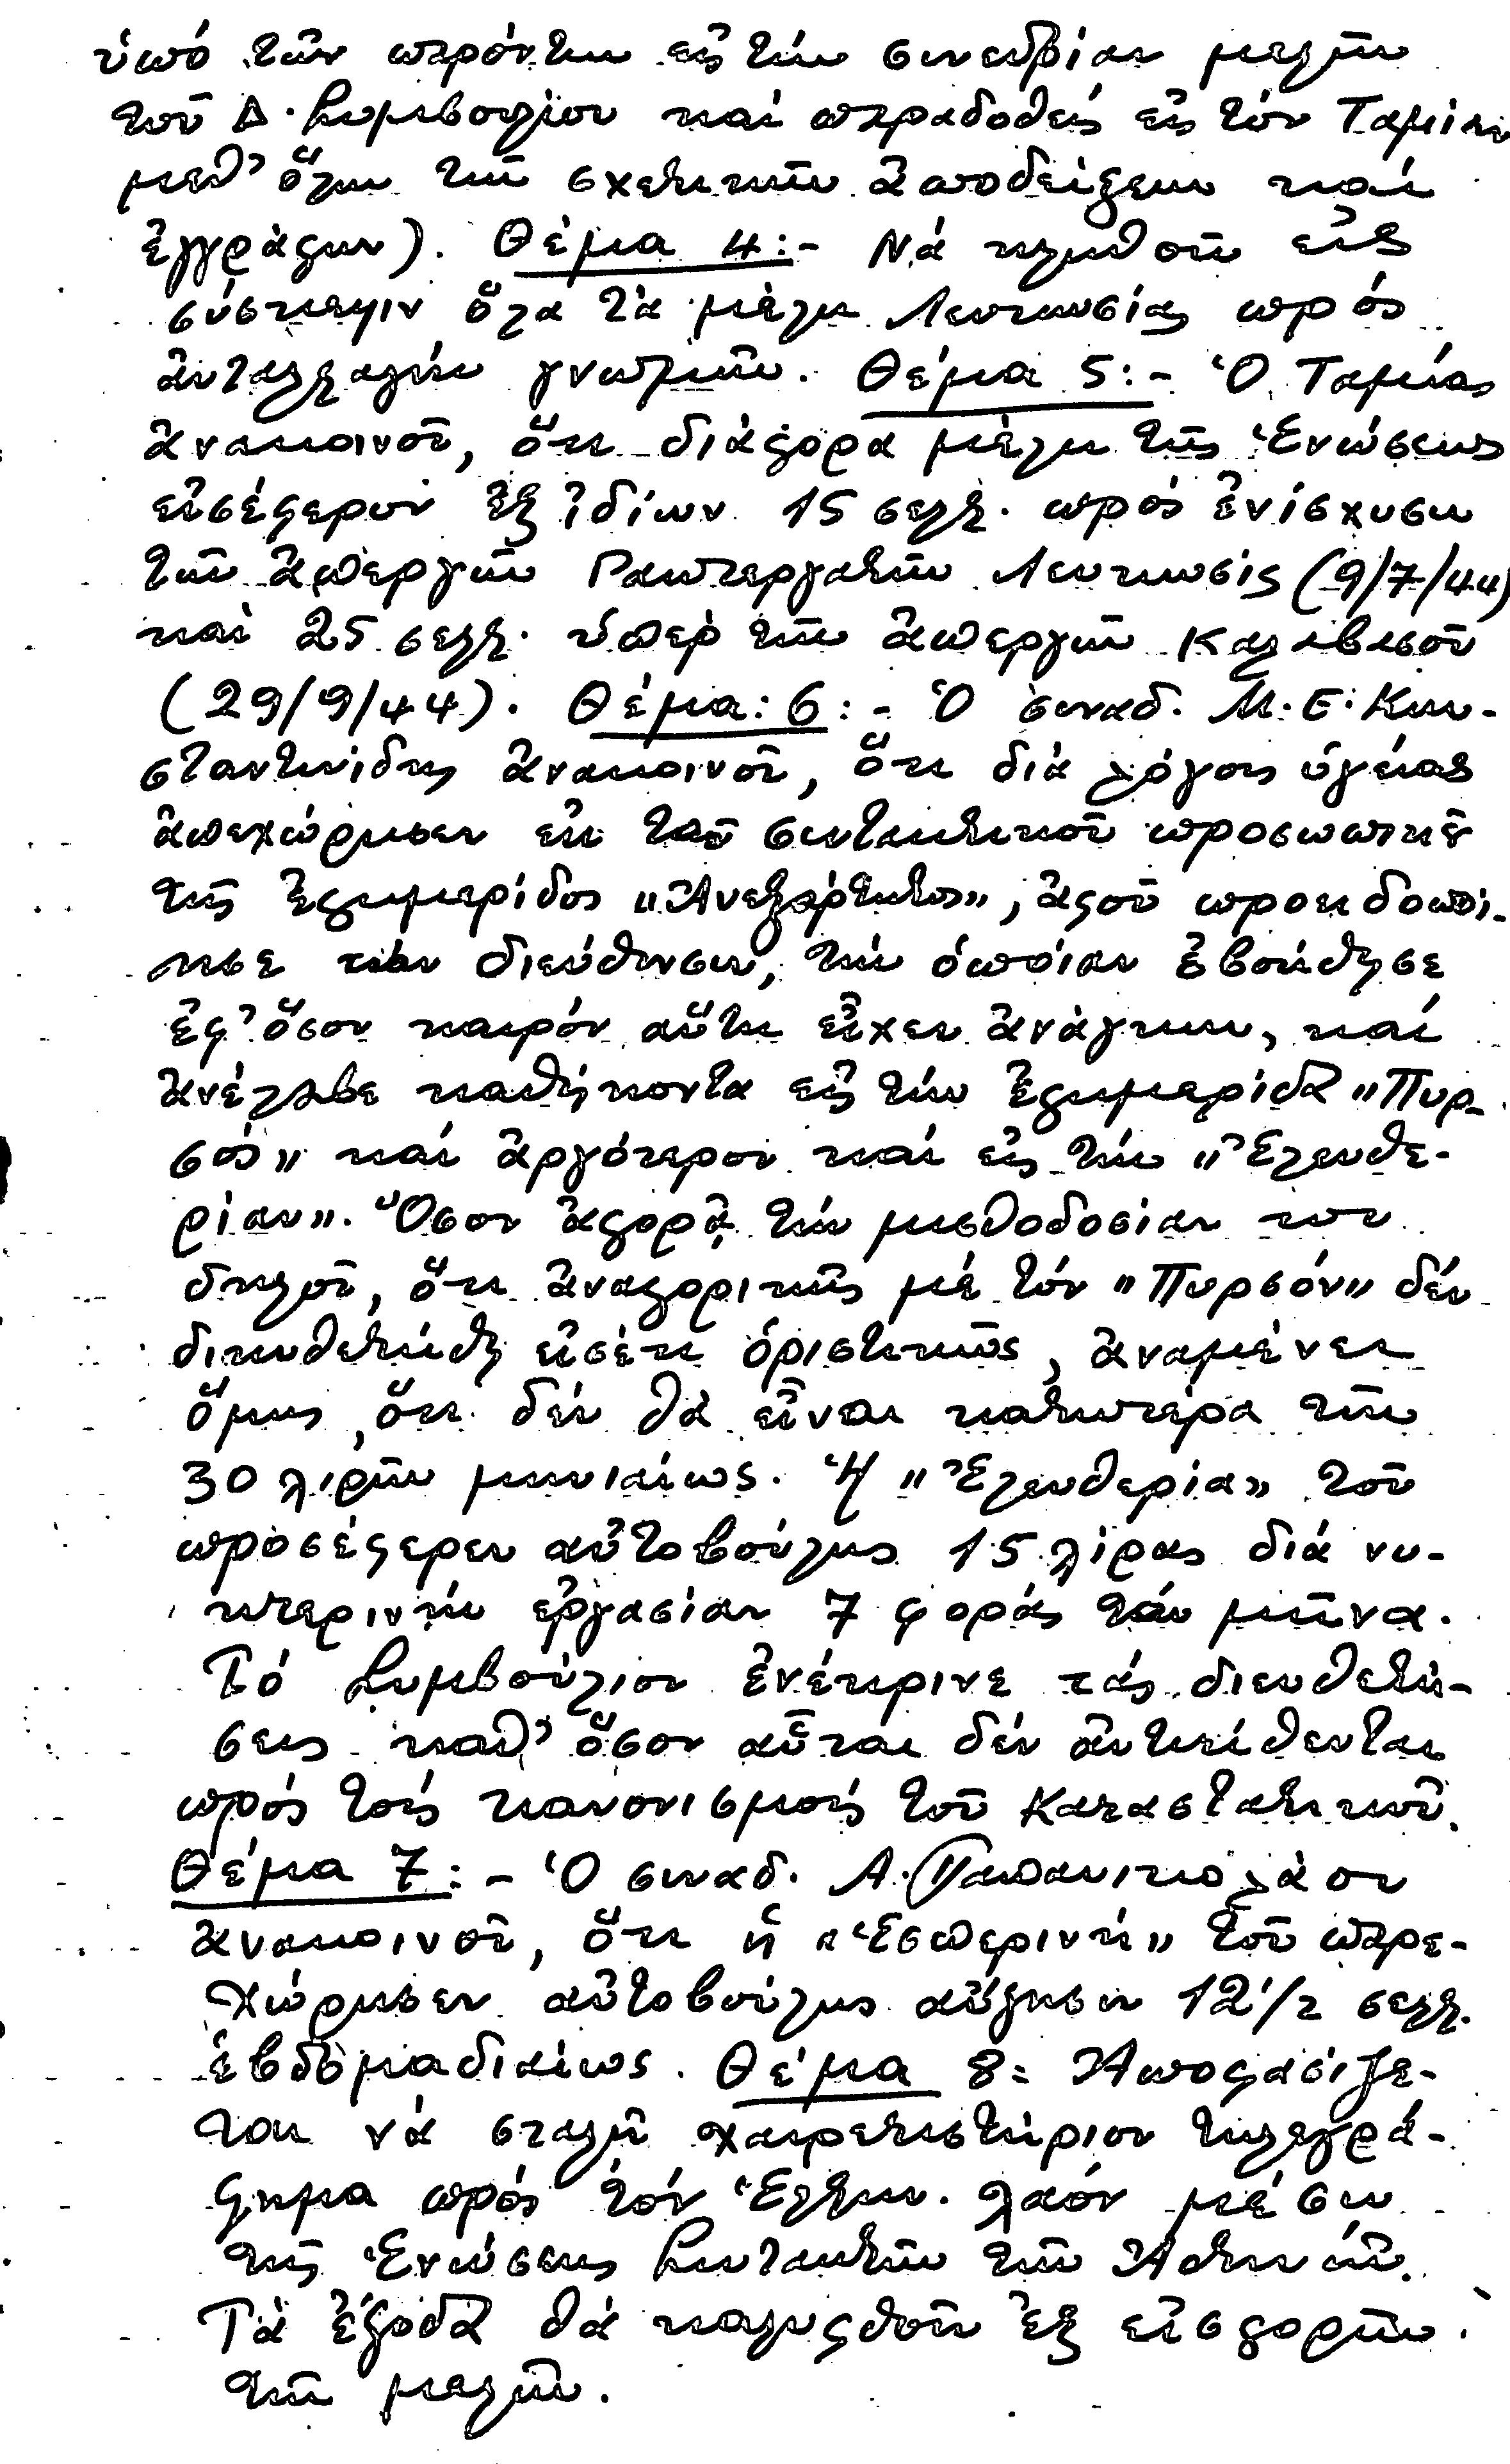 ὑπό τῶν παρόντων εἰς τήν συνεδρίαν μελῶν
τοῦ Δ. Συμβουλίου καί παραδοθείς εἰς τόν Ταμίαν
μεθ' ὅλων τῶν σχετικῶν ἀποδείξεων καί
ἐγγράφων). Θέμα 4:- Νά κληθοῦν εἰς
σύσκεψιν ὅλα τά μέλη Λευκωσίας πρός
ἀνταλλαγήν γνωμῶν. Θέμα 5:- Ὁ Ταμίας
ἀνακοινοῖ, ὅτι διάφορα μέλη τῆς Ἑνώσεως
εἰσέφερον ἐξ ἰδίων 15 σελ. πρός ἐνίσχυσιν
τῶν ἀπεργῶν Ραπτεργατῶν Λευκωσίς (9/7/44)
καί 25 σελ. ὑπέρ τῶν ἀπεργῶν Καλαβασοῦ
(29/9/44). Θέμα: 6:- Ὁ συναδ. Μ. Ε. Κων-
σταντινίδης ἀνακοινοῖ, ὅτι διά λόγους ὑγείας
ἀπεχώρησεν ἐκ τοῦ συντακτικοῦ προσωπικοῦ
τῆς ἐφημερίδος "Ἀνεξάρτητος", ἀφοῦ προειδοποί-
ησε τήν διεύθυνσιν, τήν ὁποίαν ἐβοήθησε
ἐφ' ὅσον καιρόν αὕτη εἶχεν ἀνάγκην, καί
ἀνέλαβε καθήκοντα εἰς τήν ἐφημερίδα "Πυρ-
σός" καί ἀργότερον καί εἰς τήν "Ἐλευθε-
ρίαν". Ὅσον ἀφορᾷ τήν μισθοδοσίαν του
δηλοῖ, ὅτι ἀναφορικῶς μέ τόν "Πυρσόν" δέν
διηυθετήθη εἰσέτι ὁριστικῶς, ἀναμένει
ὅμως, ὅτι δέν θά εἶναι κατωτέρα τῶν
30 λιρῶν μηνιαίως. Ἡ "Ἐλευθερία" τοῦ
προσέφερεν αὐτοβούλως 15 λίρας διά νυ-
κτερινήν ἐργασίαν 7 φοράς τόν μῆνα.
Τό Συμβούλιον ἐνέκρινε τάς διευθετή-
σεις καθ' ὅσον αὗται δέν ἀντιτίθενται
πρός τούς κανονισμούς τοῦ Καταστατικοῦ.
Θέμα 7:- Ὁ συναδ. Α. Παπανικολάου
ἀνακοινοῖ, ὅτι ἡ "Ἑσπερινή" τοῦ παρε-
χώρησεν αὐτοβούλως αὔξησιν 12 1/2 σελ.
ἑβδομαδιαίως. Θέμα 8: Ἀποφασίζε-
ται νά σταλῇ χαιρετιστήριον τηλεγρά-
φημα πρός τόν Ἑλλην. λαόν μέσω
τῆς Ἑνώσεως Συντακτῶν τῶν Ἀθηνῶν.
Τά ἔξοδα θά καλυφθοῦν ἐξ εἰσφορῶν
τῶν μελῶν.